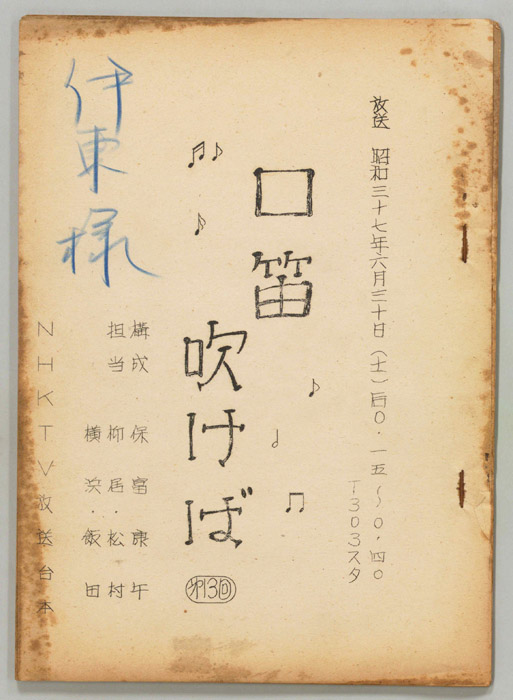 放送 昭和三十七年六月三十日(土)后0・一五〜0・四0
T303スタ
口笛吹けば
第13回
構成・保富康午
担当 柳居・松村
横浜・飯田
伊東様
NHKTV放送台本